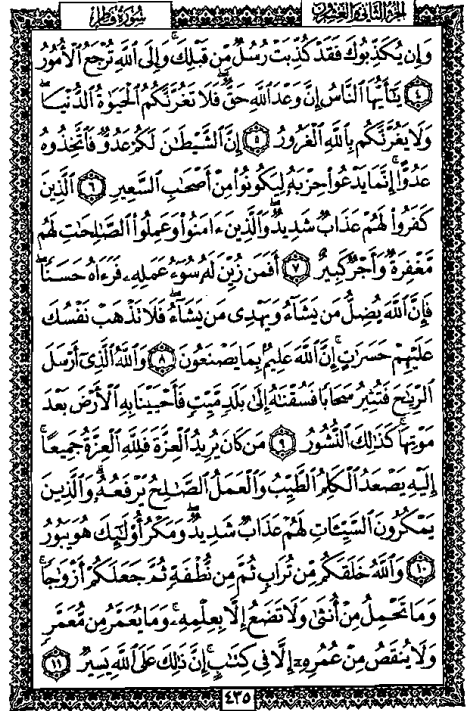 سُورَةُ فَاطِرٍ
الجزء الثاني والعشرون
وَإِن يُكَذِّبُوكَ فَقَدْ كُذِّبَتْ رُسُلٌ مِّن قَبْلِكَ ۚ وَإِلَى ٱللَّهِ تُرْجَعُ ٱلْأُمُورُ
٤ يَـٰٓأَيُّهَا ٱلنَّاسُ إِنَّ وَعْدَ ٱللَّهِ حَقٌّ ۖ فَلَا تَغُرَّنَّكُمُ ٱلْحَيَوٰةُ ٱلدُّنْيَا ۖ
وَلَا يَغُرَّنَّكُم بِٱللَّهِ ٱلْغَرُورُ ٥ إِنَّ ٱلشَّيْطَـٰنَ لَكُمْ عَدُوٌّ فَٱتَّخِذُوهُ
عَدُوًّا ۚ إِنَّمَا يَدْعُوا۟ حِزْبَهُۥ لِيَكُونُوا۟ مِنْ أَصْحَـٰبِ ٱلسَّعِيرِ ٦ ٱلَّذِينَ
كَفَرُوا۟ لَهُمْ عَذَابٌ شَدِيدٌ ۖ وَٱلَّذِينَ ءَامَنُوا۟ وَعَمِلُوا۟ ٱلصَّـٰلِحَـٰتِ لَهُم
مَّغْفِرَةٌ وَأَجْرٌ كَبِيرٌ ٧ أَفَمَن زُيِّنَ لَهُۥ سُوٓءُ عَمَلِهِۦ فَرَءَاهُ حَسَنًا ۖ
فَإِنَّ ٱللَّهَ يُضِلُّ مَن يَشَآءُ وَيَهْدِى مَن يَشَآءُ ۖ فَلَا تَذْهَبْ نَفْسُكَ
عَلَيْهِمْ حَسَرَٰتٍ ۚ إِنَّ ٱللَّهَ عَلِيمٌۢ بِمَا يَصْنَعُونَ ٨ وَٱللَّهُ ٱلَّذِىٓ أَرْسَلَ
ٱلرِّيَـٰحَ فَتُثِيرُ سَحَابًا فَسُقْنَـٰهُ إِلَىٰ بَلَدٍ مَّيِّتٍ فَأَحْيَيْنَا بِهِ ٱلْأَرْضَ بَعْدَ
مَوْتِهَا ۚ كَذَٰلِكَ ٱلنُّشُورُ ٩ مَن كَانَ يُرِيدُ ٱلْعِزَّةَ فَلِلَّهِ ٱلْعِزَّةُ جَمِيعًا ۚ
إِلَيْهِ يَصْعَدُ ٱلْكَلِمُ ٱلطَّيِّبُ وَٱلْعَمَلُ ٱلصَّـٰلِحُ يَرْفَعُهُۥ ۚ وَٱلَّذِينَ
يَمْكُرُونَ ٱلسَّيِّـَٔاتِ لَهُمْ عَذَابٌ شَدِيدٌ ۖ وَمَكْرُ أُو۟لَـٰٓئِكَ هُوَ يَبُورُ
١٠ وَٱللَّهُ خَلَقَكُم مِّن تُرَابٍ ثُمَّ مِن نُّطْفَةٍ ثُمَّ جَعَلَكُمْ أَزْوَٰجًا ۚ
وَمَا تَحْمِلُ مِنْ أُنثَىٰ وَلَا تَضَعُ إِلَّا بِعِلْمِهِۦ ۚ وَمَا يُعَمَّرُ مِن مُّعَمَّرٍ
وَلَا يُنقَصُ مِنْ عُمُرِهِۦٓ إِلَّا فِى كِتَـٰبٍ ۚ إِنَّ ذَٰلِكَ عَلَى ٱللَّهِ يَسِيرٌ ١١
٤٣٥